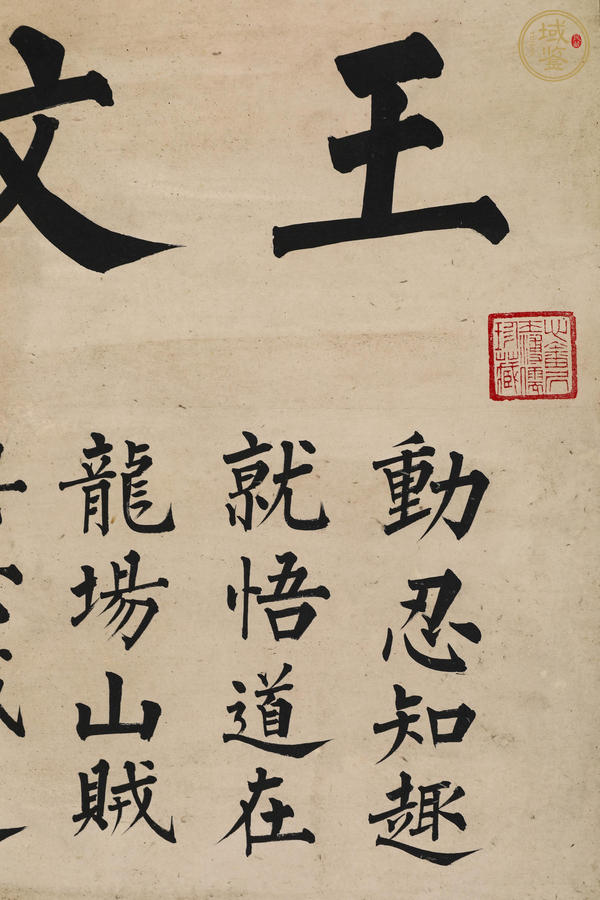 王文
動忍知趣
就悟道在
龍場山賊
域鑒